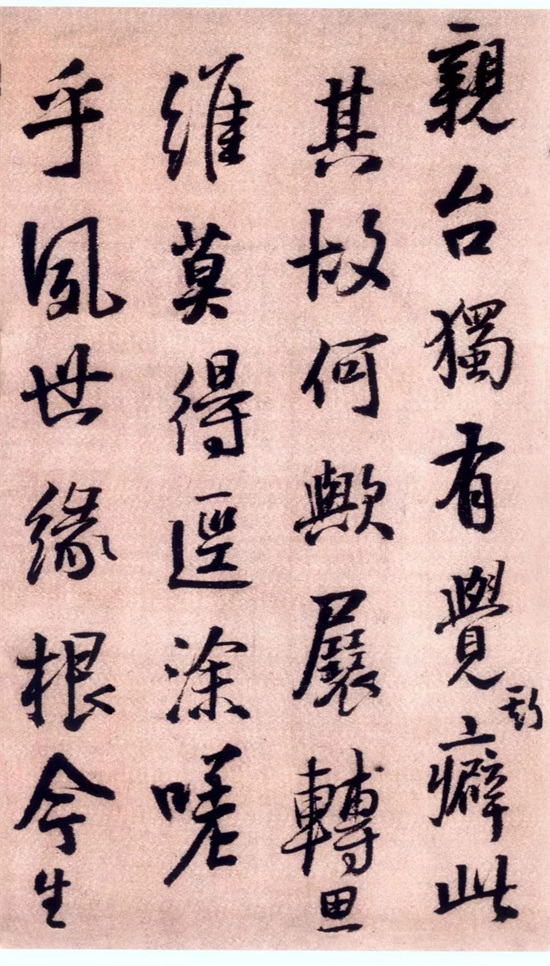 親台獨有覺癖此
其故何歟展轉思
維莫得逕涂嗟
乎夙世緣根今生